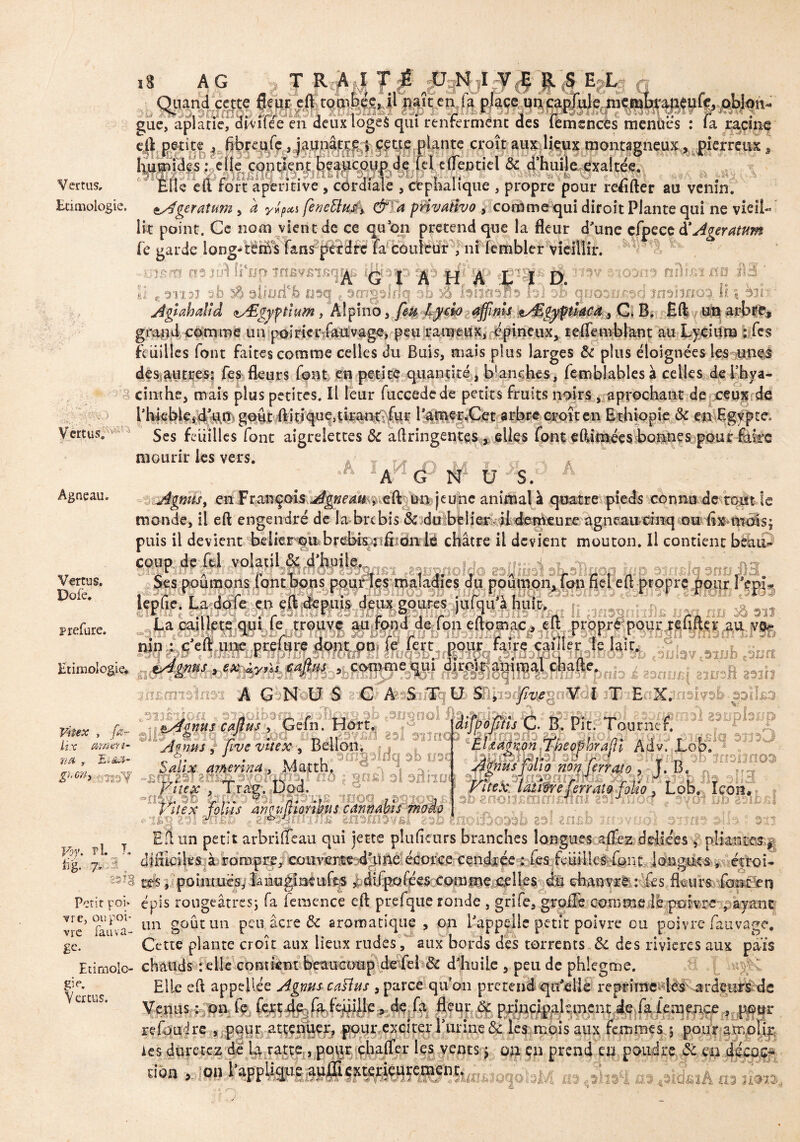 18 AG TRAITÉ UNIVERSEL
Quand cette fleur est tombée, il naît en sa place un capsule membraneuse, oblon-
gue, aplatie, divisée en deux loges qui renferment des semences menuës : sa racine
est petite, fibreuse, jaunâtre ; cette plante croît aux lieux montagneux, pierreux,
humides : elle contient beaucoup de sel essentiel & d'huile exaltée.
Vertus. Elle est fort aperitive, cordiale, cephalique, propre pour resister au venin.
Etimologie. Ageratum, à γῆρας senectus, & a privativo, comme qui diroit Plante qui ne vieil-
lit point. Ce nom vient de ce qu'on pretend que la fleur d'une espece d'Ageratum
se garde long-tems sans perdre sa couleur, ni sembler vieillir.
AGIAHALID.
Agiahalid Ægyptium, Alpino, seu Lycio affinis Ægyptiaca, C. B. Est un arbre,
grand comme un poirier sauvage, peu rameux, épineux, ressemblant au Lycium : ses
feüilles sont faites comme celles du Buis, mais plus larges & plus éloignées les unes
des autres; ses fleurs sont en petite quantité, blanches, semblables à celles de l'hya-
cinthe, mais plus petites. Il leur succede de petits fruits noirs, aprochant de ceux de
l'hieble, d'un goût stitique, tirant sur l'amer. Cet arbre croît en Ethiopie & en Egypte.
Vertus. Ses feüilles sont aigrelettes & astringentes, elles sont estimées bonnes pour faire
mourir les vers.
AGNUS.
Agneau. Agnus, en François Agneau, est un jeune animal à quatre pieds connu de tout le
monde, il est engendré de la brebis & du belier. il demeure agneau cinq ou six mois;
puis il devient belier ou brebis ; si on le châtre il devient mouton. Il contient beau-
coup de sel volatil & d'huile.
Vertus. Ses poûmons sont bons pour les maladies du poûmon, son fiel est propre pour l'epi-
Dose. lepsie. La dose en est depuis deux goutes jusqu'à huit.
Presure. La caillete qui se trouve au fond de son estomac, est propre pour resister au ve-
nin : c'est une presure dont on se sert pour faire cailler le lait.
Etimologie. Agnus, ex ἁγνὸς castus, comme qui diroit animal chaste.
AGNUS CASTUS, sive VITEX.
Vitex, sa- Agnus castus, Gesn. Hort.
lix ameri- Agnus, sive vitex, Bellon.
na, Salix amerina, Matth.
Vitex, Trag. Dod.
Vitex foliis angustioribus cannabis modo
dispositis C. B. Pit. Tournef.
Elæagnon Theophrasti Adv. Lob.
Agnus folio non serrato, J. B.
Vitex latiore serrato folio, Lob. Icon.
Voy. Pl. I. Est un petit arbrisseau qui jette plusieurs branches longues assez deliées, pliantes,
fig. 7. difficiles à rompre, couverte d'une écorce cendrée : ses feüilles sont longues, étroi-
tes, pointuës, lanugineuses, disposées comme celles du chanvre : ses fleurs sont en
Petit poi- épis rougeâtres; sa semence est presque ronde, grise, grosse comme le poivre, ayant
vre, ou poi- un goût un peu âcre & aromatique, on l'appelle petit poivre ou poivre sauvage.
vre sauva-
ge. Cette plante croît aux lieux rudes, aux bords des torrents & des rivieres aux païs
Etimolo- chauds : elle contient beaucoup de sel & d'huile, peu de phlegme.
gie. Elle est appellée Agnus castus, parce qu'on pretend qu'elle reprime les ardeurs de
Vertus. Venus : on se sert de sa feüille, de sa fleur & principalement de sa semence, pour
resoudre, pour attenuer, pour exciter l'urine & les mois aux femmes ; pour amolir
les duretez de la ratte, pour chasser les vents ; on en prend en poudre & en décoc-
tion, on l'applique aussi exterieurement.